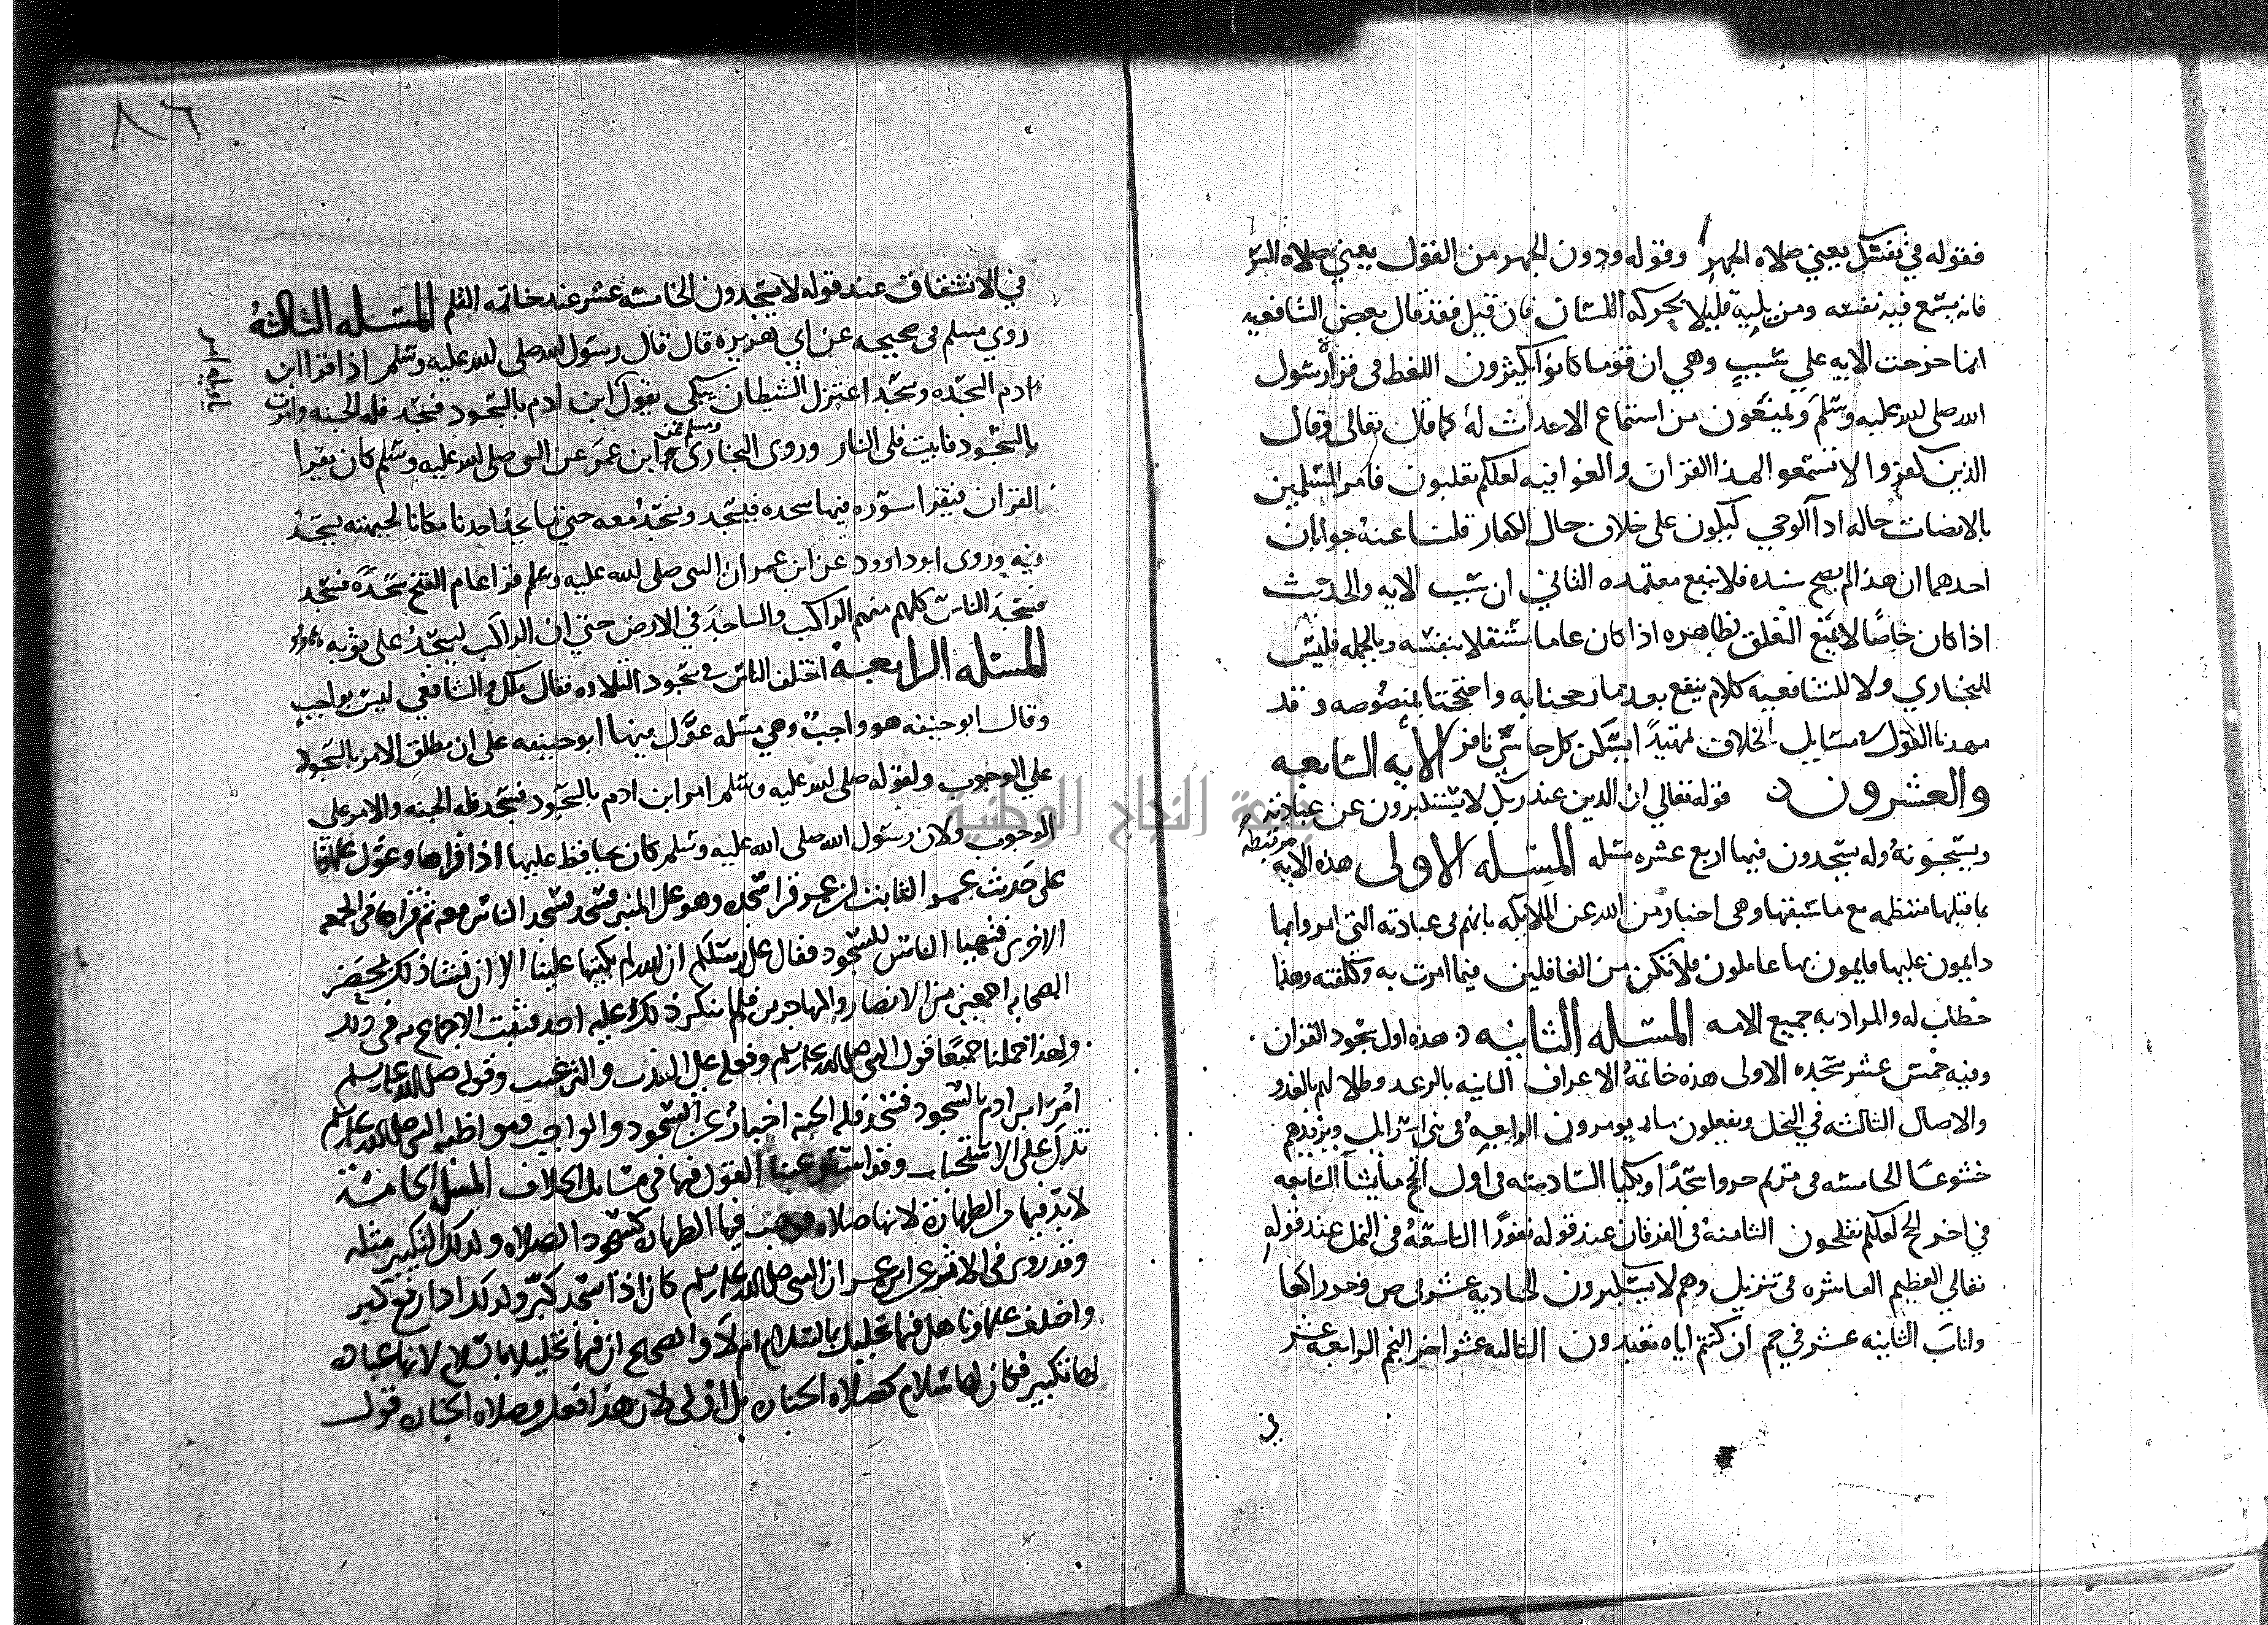 فقوله في نفسك يعني صلاه الجهر وقوله ودون الجهر من القول يعني صلاه السر
فانه يسمع فيه نفسه ومن يليه قليلا بحركه اللسان فان قيل فقد قال بعض الشافعيه
انما خرجت الايه علي سبب وهي ان قوما كانوا يكثرون اللغط في قراة رسول
الله صلى الله عليه وسلم ويمنعون من استماع الاحداث له كما قال تعالى وقال
الذين كفروا لا تسمعوا لهذا القران والغوا فيه لعلكم تغلبون فامر المسلمين
بالانصات حاله ادا الوحي ليكون على خلاف حال الكفار قلنا عنه جوابان
احدهما ان هذا لم يصح سنده فلا ينفع معتمده الثاني ان سبب الايه والحديث
اذا كان خاصا لا يمنع التعلق بظاهره اذا كان عاما مستقلا بنفسه وبالجمله فليس
للبخاري ولا للشافعيه كلام ينفع بعدما رجحنا به واحتججنا بمنصوصه وقد
مهدنا القول في مسايل الخلاف تمهيدا يسكن كل جاش نافر الايه السابعه
والعشرون قوله تعالي ان الذين عند ربك لا يستكبرون عن عبادته
ويسبحونه وله يسجدون فيها اربع عشره مسله المسله الاولى هذه الايه مرتبطه
بما قبلها منتظمه مع ما سبقها وهي اخبار من الله عن الملايكه بانهم في عبادته التي امروا بها
دايمون عليها قايمون بها عاملون فلا تكن من الغافلين فيما امرت به وكلفته وهذا
خطاب له والمراد به جميع الامه المسله الثانيه هذه اول سجود القران
وفيه خمس عشر سجده الاولى هذه خاتمه الاعراف الثانيه بالرعد وظلالهم بالغدو
والاصال الثالثه في النحل ويفعلون ما يومرون الرابعه في بني اسرايل ويزيدهم
خشوعا الخامسه في مريم خروا سجدا وبكيا السادسه في اول الحج ما يشا السابعه
في اخر الحج لعلكم تفلحون الثامنه في الفرقان عند قوله نفورا التاسعه في النمل عند قوله
تعالي العظيم العاشره في تنزيل وهم لا يستكبرون الحاديه عشر في ص وخر راكعا
واناب الثانيه عشر في حم ان كنتم اياه تعبدون الثالثه عشر اخر النجم الرابعه عشر
في
٨٦
في الانشقاق عند قوله لا يسجدون الخامسه عشر عند خاتمه القلم المسله الثالثه
روي مسلم في صحيحه عن ابي هريره قال قال رسول الله صلى الله عليه وسلم اذا قرا ابن
ادم السجده وسجد اعتزل الشيطان يبكي يقول ابن ادم بالسجود فسجد فله الجنه وامرت
بالسجود فابيت فلى النار وروى البخاري ومسلم عن ابن عمر عن النبي صلى الله عليه وسلم كان يقرا
القران فيقرا سوره فيها سجده فيسجد ونسجد معه حتي ما يجد احدنا مكانا لجبهته يسجد
فيه وروى ابو داوود عن ابن عمر ان النبي صلى الله عليه وسلم قرا عام الفتح سجده فسجد
فسجد الناس كلهم منهم الراكب والساجد في الارض حتي ان الراكب ليسجد على ثوبه
المسله الرابعه اختلف الناس في سجود التلاوه فقال ملك والشافعي ليس بواجب
وقال ابو حنيفه هو واجب وهي مسله عول فيها ابو حنيفه على ان مطلق الامر بالسجود
علي الوجوب ولقوله صلى الله عليه وسلم امر ابن ادم بالسجود فسجد فله الجنه والامر على
الوجوب ولان رسول الله صلى الله عليه وسلم كان يحافظ عليها اذا قراها وعول علماونا
على حديث عمر الثابت ان عمر قرا سجده وهو على المنبر فسجد فسجد الناس معه ثم قراها في الجمعه
الاخرى فتهيا الناس للسجود فقال على رسلكم ان الله لم يكتبها علينا الا ان نشا وذلك بمحضر
الصحابه اجمعين من الانصار والمهاجرين فلم ينكر ذلك عليه احد فثبت الاجماع به في ذلك
ولهذا حملنا جميعا قول النبي صلى الله عليه وسلم وفعله على الندب والترغيب وقوله صلى الله عليه وسلم
امر ابن ادم بالسجود فسجد فله الجنه اخبار عن السجود والواجب ومواظبه النبي صلى الله عليه وسلم
تدل على الاستحباب وقد استوعبنا القول فيها في مسايل الخلاف المسله الخامسه
لا بد فيها من الطهاره لانها صلاه فوجب فيها الطهاره كسجود الصلاه وكذلك التكبير مثله
وقد روى في الاثر عن ابن عمر ان النبي صلى الله عليه وسلم كان اذا سجد كبر وكذلك اذا رفع كبر
واختلف علماونا هل فيها تحليل بالسلام ام لا والصحيح ان فيها تحليلا بالسلام لانها عباده
لها تكبير فكان لها سلام كصلاه الجنازه بل اولى لان هذا فعل وصلاه الجنازه قول
جامعة النجاح الوطنية